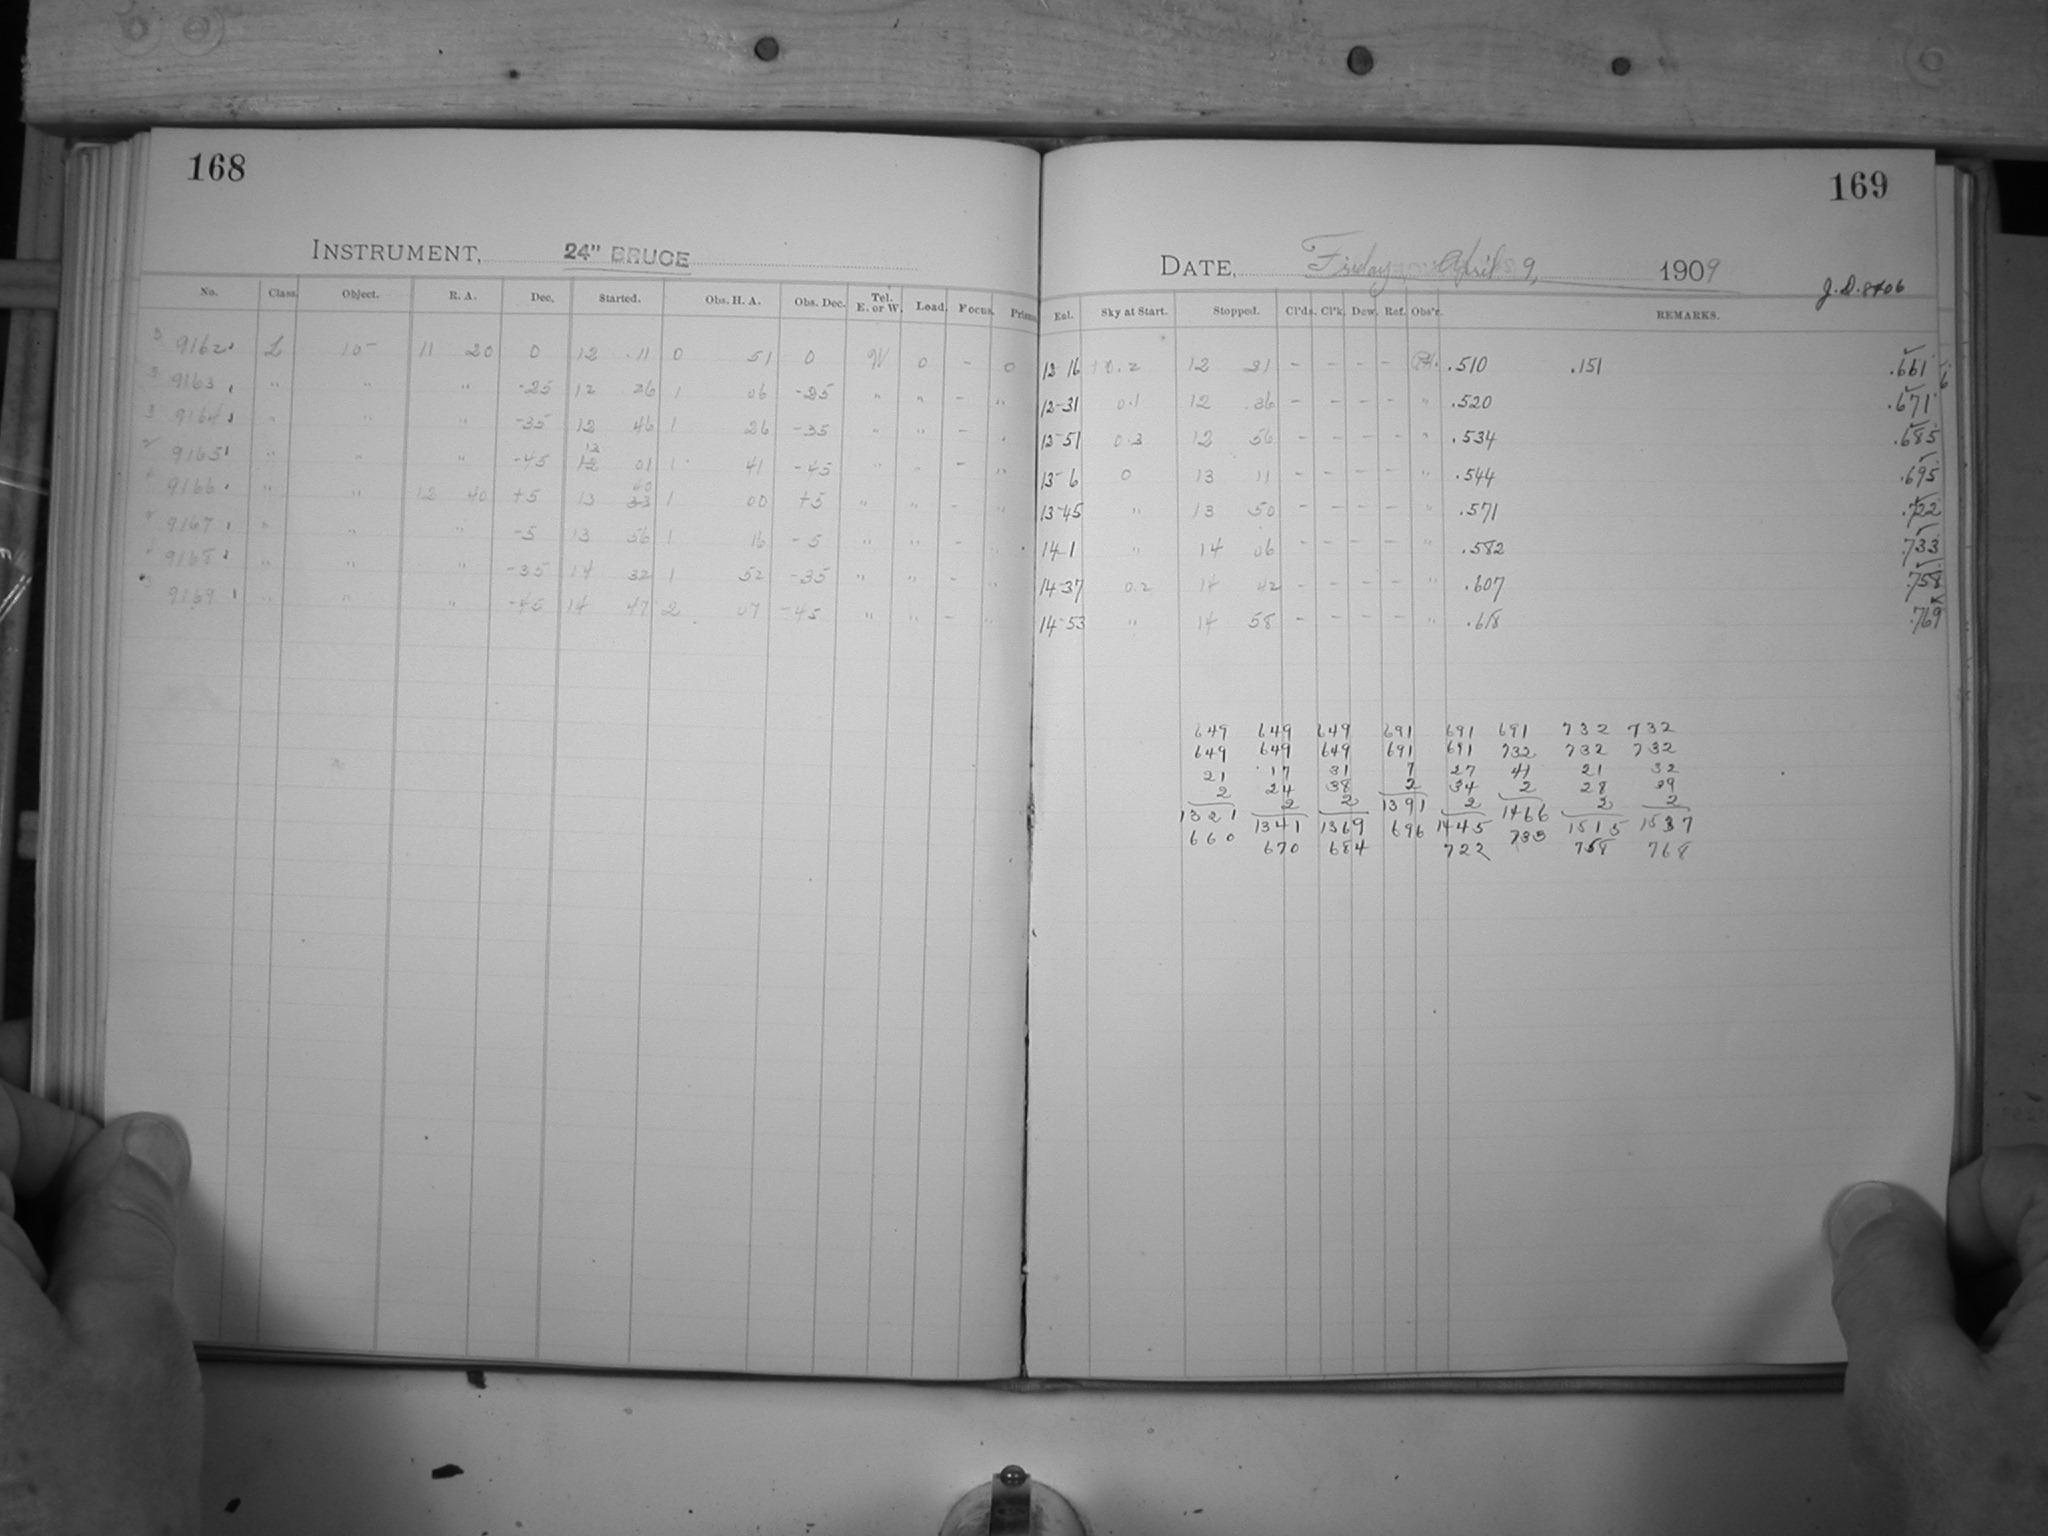 168
INSTRUMENT, 24" BRUCE
No. Class. Object. R. A. Dec. Started. Obs. H. A. Obs. Dec. Tel. E. or W. Load. Focus. Prisms.
3 9162 L 10- 11 20 0 12 11 0 51 0 W 0 - 0
3 9163 " " " -25 12 26 1 06 -25 " " - "
3 9164 " " " -35 12 46 1 26 -35 " " - "
9165 " " " -45 13 01 1 41 -45 " " - "
9166 " " 12 40 +5 13 40 1 00 +5 " " - "
9167 " " " -5 13 56 1 16 -5 " " - "
9168 " " " -35 14 32 1 52 -35 " " - "
9169 " " " -45 14 47 2 07 -45 " " - "
169
DATE, Friday, April 9, 1909
J.D. 8406
Eul. Sky at Start. Stopped. Cl'ds. Cl'k. Dew. Ref. Obs'r. REMARKS.
12 16 0.2 12 21 - - - - .510 .151 .661
12-31 0.1 12 36 - - - - " .520 .671
12-51 0.3 12 56 - - - - " .534 .685
13-6 0 13 11 - - - - " .544 .695
13-45 " 13 50 - - - - " .571 .722
14-1 " 14 06 - - - - " .582 .733
14-37 0.2 14 42 - - - - " .607 .758
14-53 " 14 58 - - - - " .618 .769
649 649 649 691 691 691 732 732
649 649 649 691 691 732 732 732
21 17 31 7 27 41 21 32
2 24 38 2 34 2 28 39
1321 2 2 1391 2 1466 2 2
660 1341 1369 696 1445 733 1515 1537
670 684 722 758 768